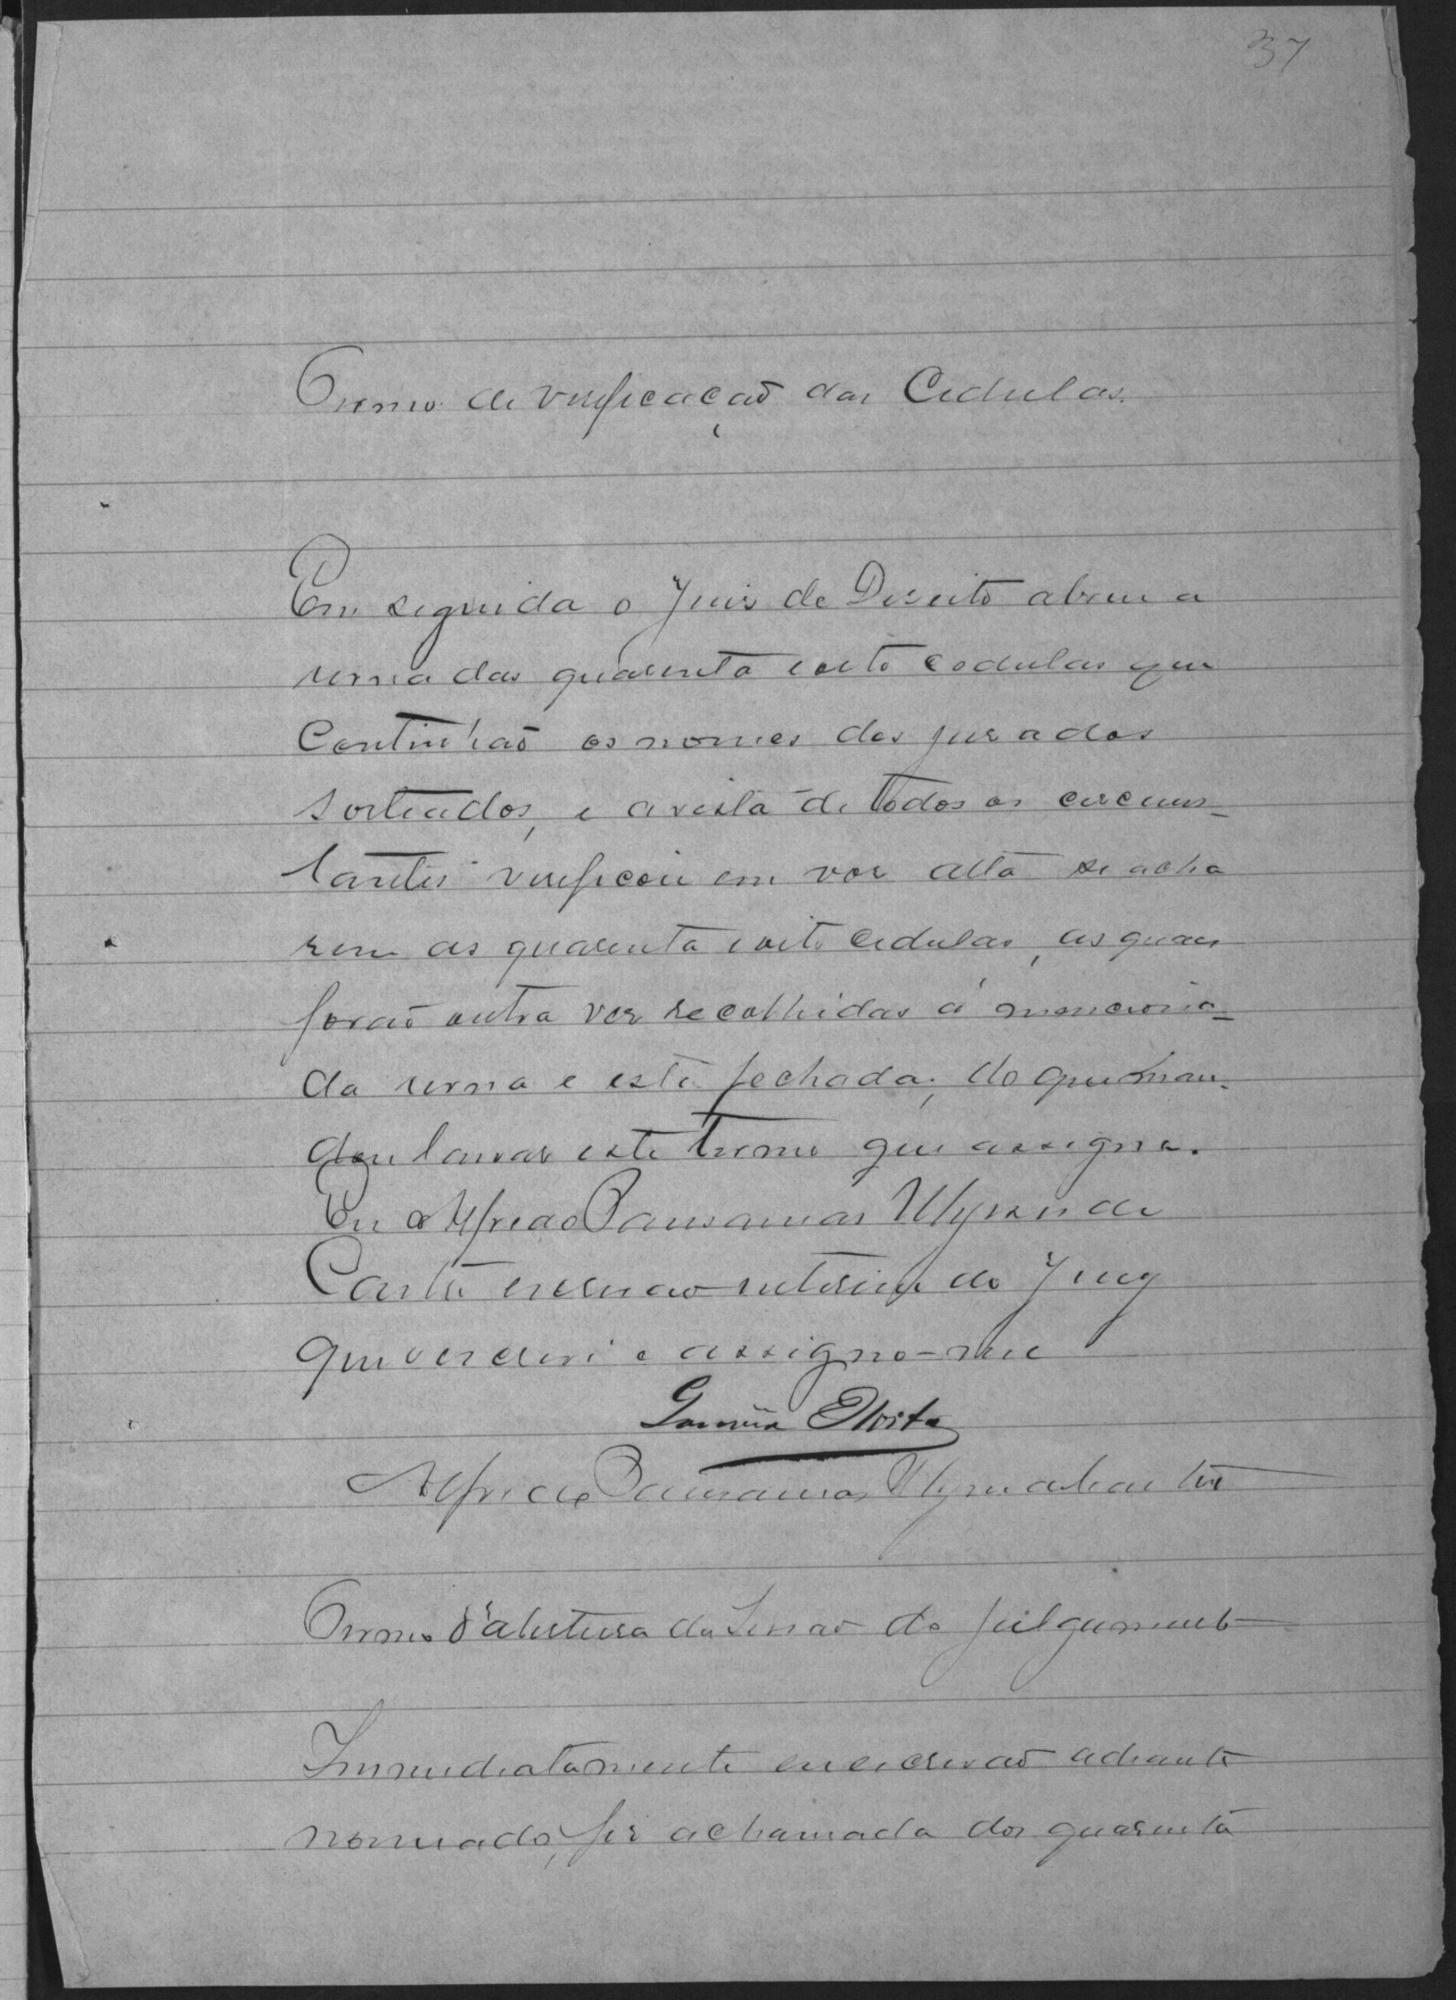 37
Termo de verificação das Cedulas.
Em seguida o Juis de Direito abriu a
urna das quarenta e oito cedulas que
Continhão os nomes dos jurados
sorteados, e a vista de todos os circuns-
tantes verificou em vos alta se acha
rem as quarenta e oito cedulas, as quaes
forão outra ves recolhidas á menciona=
da urna e esta fechada; do que man-
dou lavrar este termo que assigna.
Eu Alfredo Pausanias Ulysses de
Castro escrivão interino do Jury
que escrevi e assigno-me
Alfredo Pausanias Ulysses de Castro
Termo d'abertura da Sessão do julgamento
Immediatamente eu escrivão adiante
nomeado, fis a chamada dos quarenta